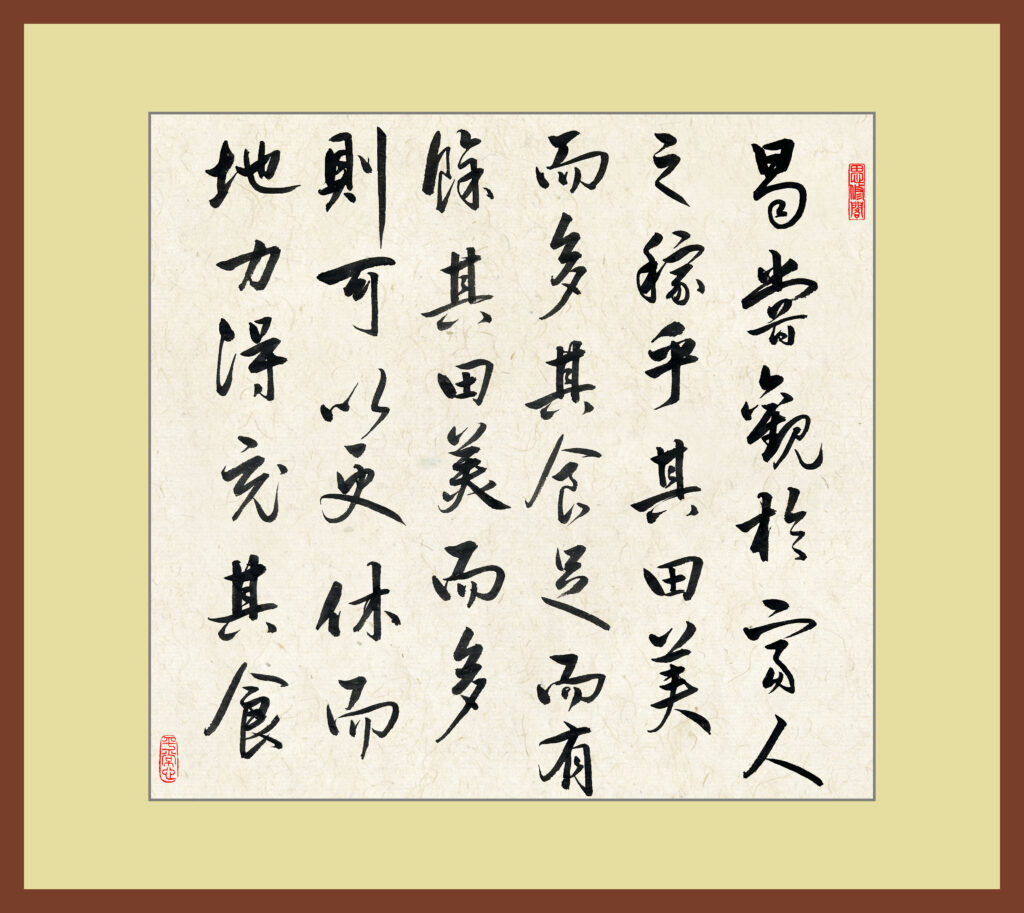 思修閣
曷嘗觀於富人
之稼乎其田美
而多其食足而有
餘其田美而多
則可以更休而
地力得完其食
平常心